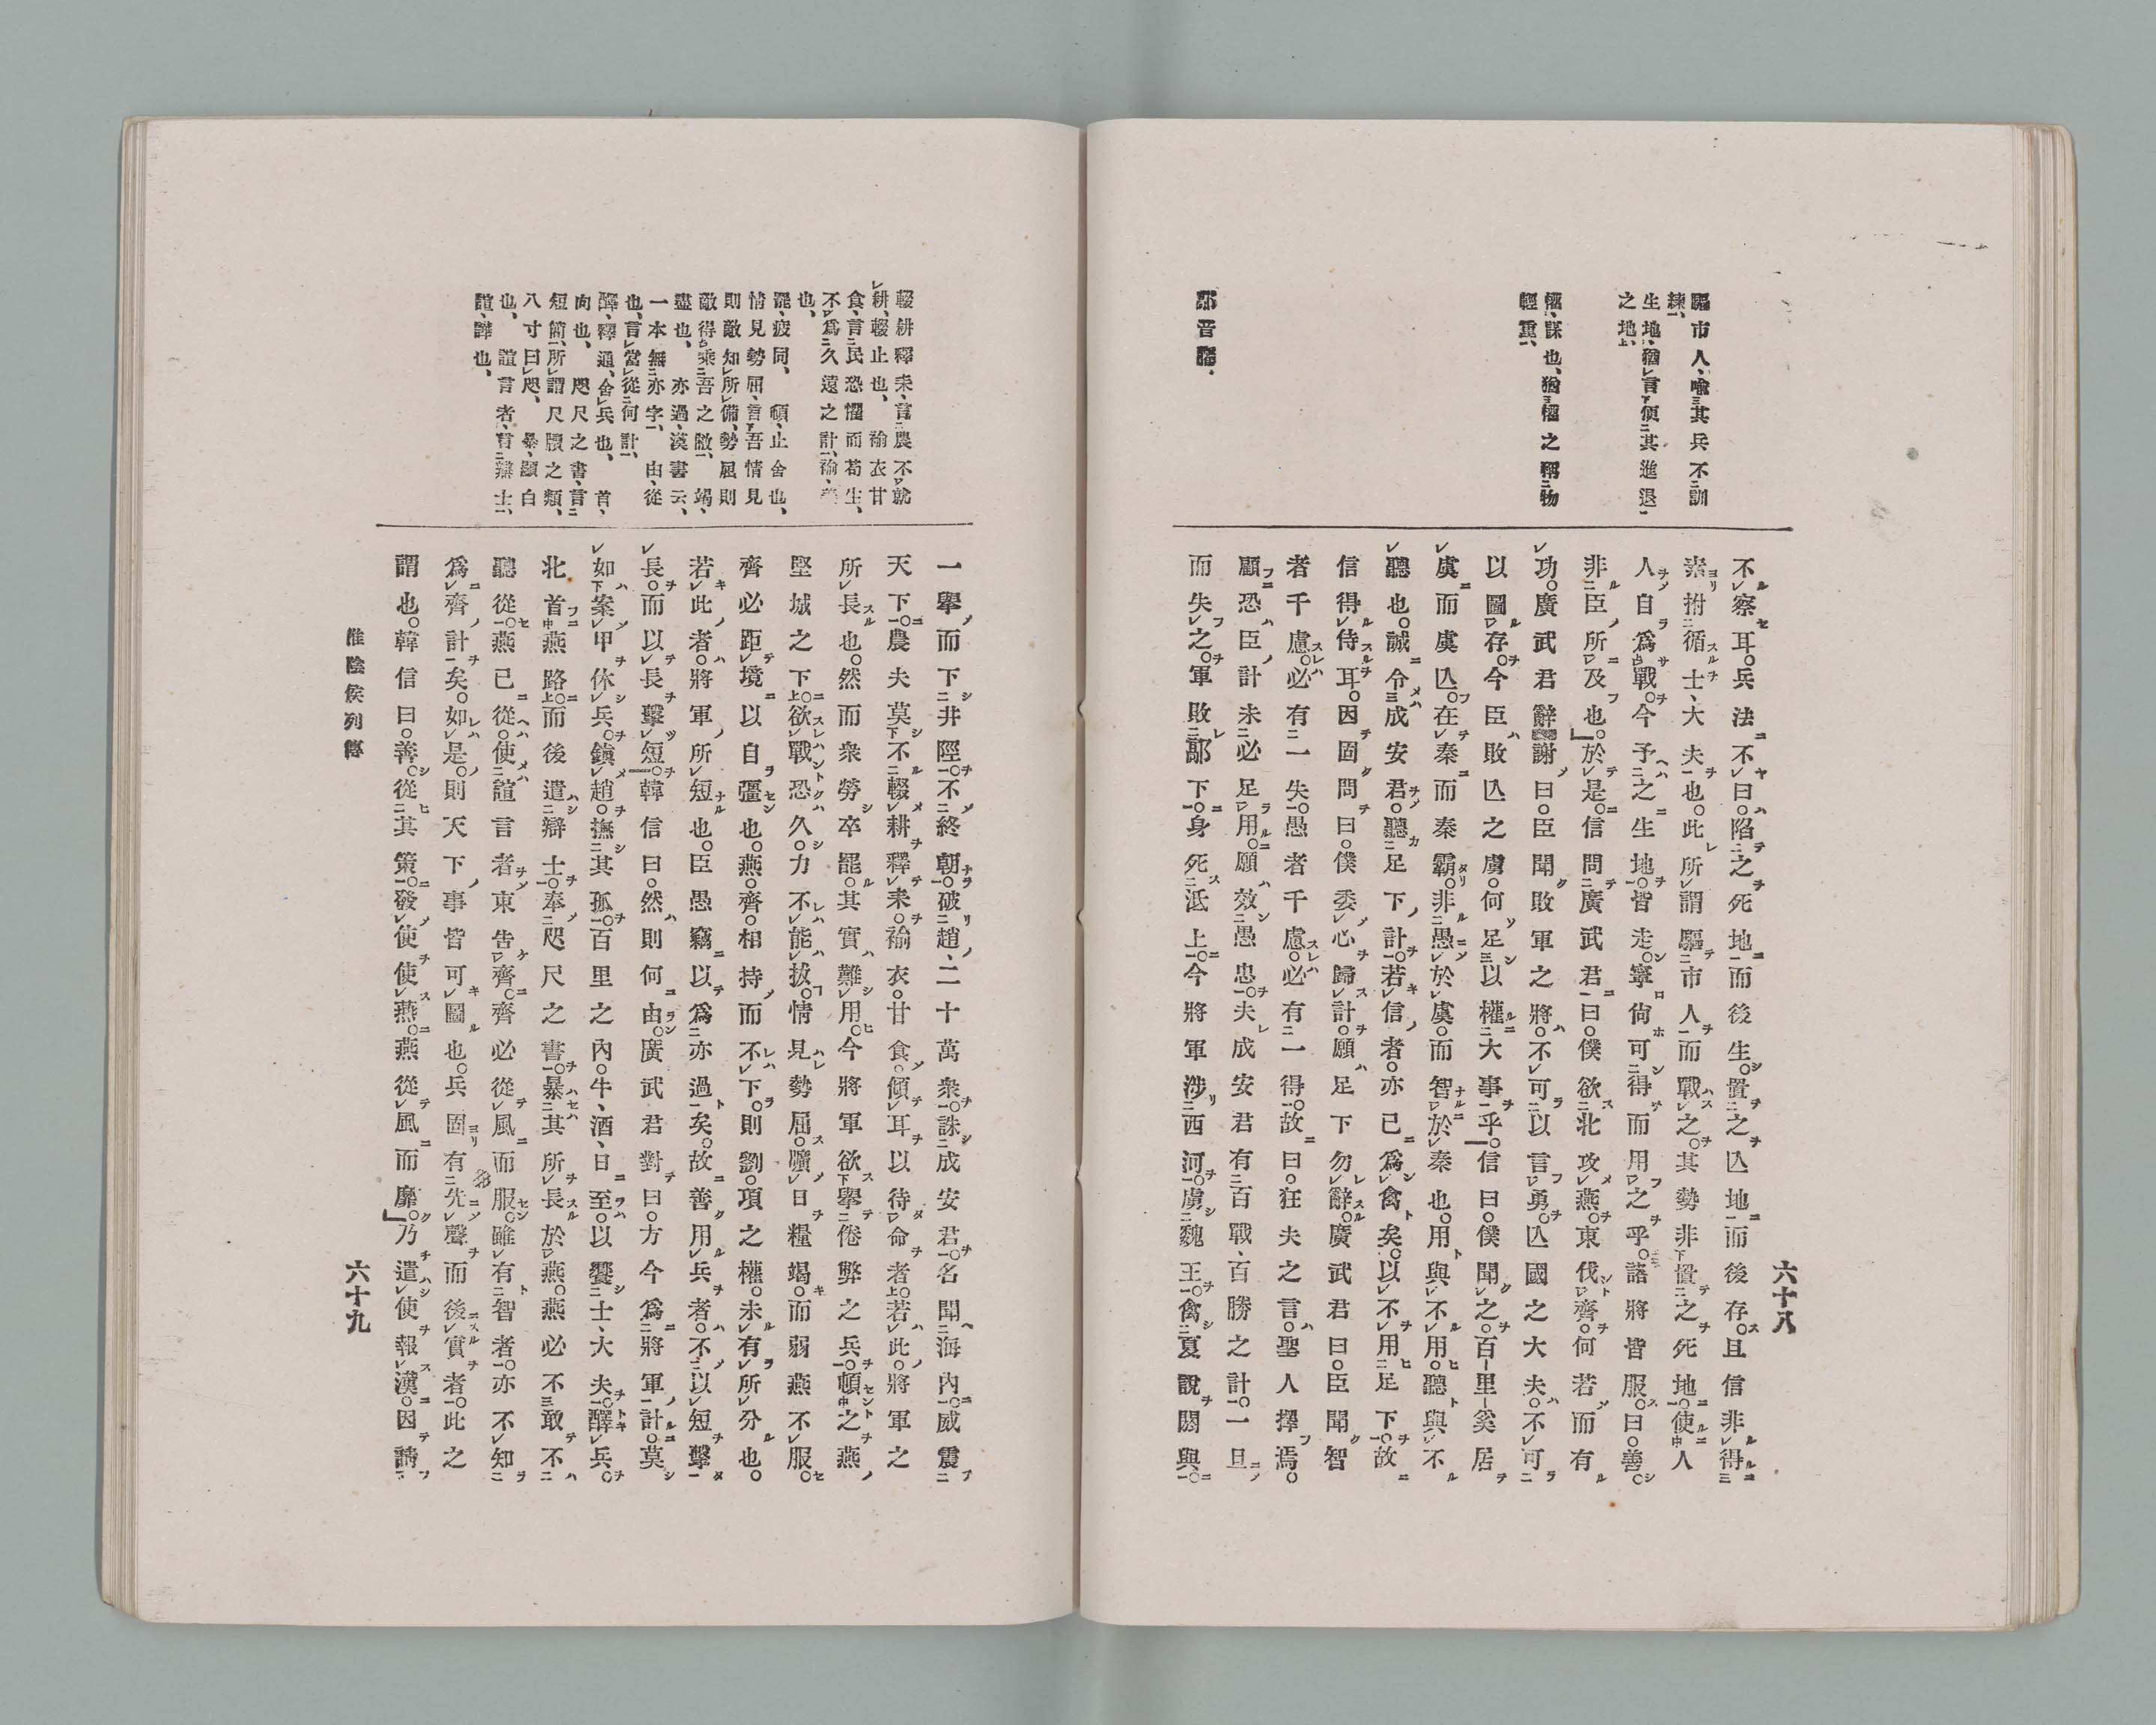 六十八
驅市人、喩其兵不訓
練、
生地、猶言便其進退
之地、
權、謀也、猶權之稱物
輕重、
鄗音臛、
不察耳。兵法不曰。陷之死地而後生。置之亾地而後存。且信非得
素拊循士、大夫也。此所謂驅市人而戰之。其勢非置之死地。使人
人自爲戰。今予之生地。皆走。寧尙可得而用之乎。諸將皆服。曰。善。
非臣所及也。」於是。信問廣武君曰。僕欲北攻燕。東伐齊。何若而有
功。廣武君辭謝曰。臣聞敗軍之將。不可以言勇。亾國之大夫。不可
以圖存。今臣敗亾之虜。何足以權大事乎。信曰。僕聞之。百里奚居
虞而虞亾。在秦而秦霸。非愚於虞。而智於秦也。用與不用。聽與不
聽也。誠令成安君。聽足下計。若信者。亦已爲禽矣。以不用足下。故
信得侍耳。因固問曰。僕委心歸計。願足下勿辭。廣武君曰。臣聞智
者千慮。必有一失。愚者千慮。必有一得。故曰。狂夫之言。聖人擇焉。
顧恐臣計未必足用。願效愚忠。夫成安君有百戰、百勝之計。一旦
而失之。軍敗鄗下。身死泜上。今將軍涉西河。虜魏王。禽夏說閼與。
輟耕釋耒、言農不就
耕、輟止也、褕衣甘
食、言民恐懼而苟生、
不爲久遠之計、褕、美
也、
罷、疲同、頓、止舍也、
情見勢屈、言吾情見
則敵知所備、勢屈則
敵得乘吾之敝、竭、
盡也、亦過、漢書云、
一本無亦字、由、從
也、言當從何計、
醳、釋通、舍兵也、首、
向也、咫尺之書、言
短簡、所謂尺牘之類、
八寸曰咫、暴、顯白
也、諠言者、言辯士、
諠、譁也、
一擧而下井陘。不終朝。破趙、二十萬衆。誅成安君。名聞海內。威震
天下。農夫莫不輟耕釋耒。褕衣。甘食。傾耳以待命者。若此。將軍之
所長也。然而衆勞卒罷。其實難用。今將軍欲擧倦弊之兵。頓之燕
堅城之下。欲戰恐久。力不能拔。情見勢屈。曠日糧竭。而弱燕不服。
齊必距境以自彊也。燕。齊。相持而不下。則劉。項之權。未有所分也。
若此者。將軍所短也。臣愚竊以爲亦過矣。故善用兵者。不以短擊
長。而以長擊短。韓信曰。然則何由。廣武君對曰。方今爲將軍計。莫
如案甲休兵。鎭趙。撫其孤。百里之內。牛、酒、日至。以饗士、大夫。醳兵。
北首燕路。而後遣辯士。奉咫尺之書。暴其所長於燕。燕必不敢不
聽從。燕已從。使諠言者東告齊。齊必從風而服。雖有智者。亦不知
爲齊計矣。如是。則天下事皆可圖也。兵固有先聲而後實者。此之
謂也。韓信曰。善。從其策。發使使燕。燕從風而靡。」乃遣使報漢。因請
淮陰侯列傳
六十九